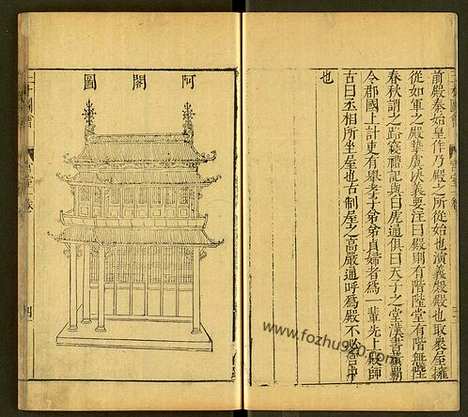 前殿秦始皇作乃殿之所從始也演義殿殿也取衆屋擁
從如軍之殿摯虞決義要注曰殿則有階陛堂有階無陛
春秋謂之路寢禮記與白虎通俱曰天子之堂漢書黃霸
令郡國上計吏有舉孝子爺爺貞婦者爲一輩先上殿師
古曰丞相所坐屋也古制屋之高嚴通呼爲殿不必宫中
也
阿閣圖
三才圖會
www.fozhu920.com